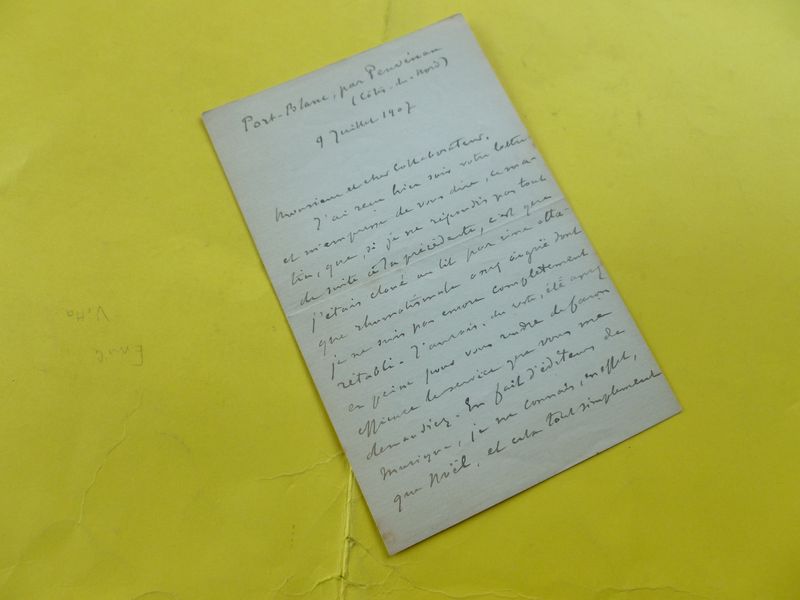 Port-Blanc, par Penvénan
(Côtes-du-Nord)
9 Juillet 1907
Monsieur et cher Collaborateur,
J'ai reçu hier soir votre lettre
et m'empresse de vous dire, ce ma-
tin, que, si je ne répondis pas tout
de suite à la précédente, c'est que
j'étais cloué au lit par une atta-
que rhumatismale assez aiguë dont
je ne suis pas encore complètement
rétabli. J'aurais, du reste, été assez
en peine pour vous rendre de façon
efficace le service que vous me
demandiez. En fait d'éditeurs de
musique, je ne connais, en effet,
que Noël, et cela tout simplement